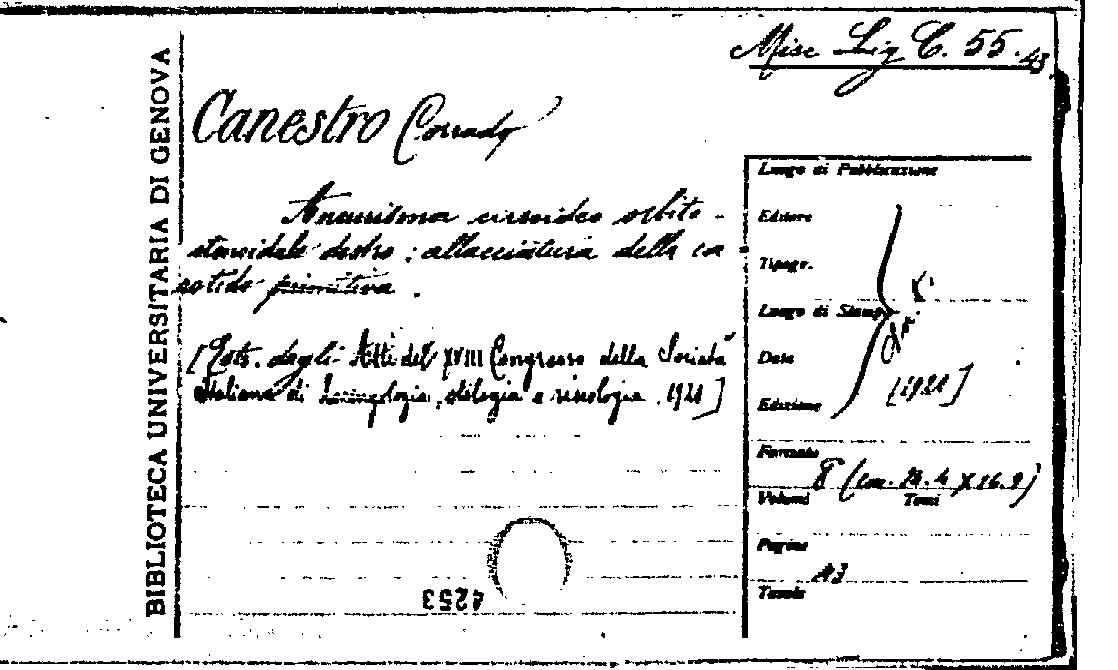 Misc Lig C. 55.43
BIBLIOTECA UNIVERSITARIA DI GENOVA
Canestro Corrado
Aneurisma cirsoideo orbito-
etmoidale destro: allacciatura della ca
rotide primitiva.
[Estr. degli Atti del XVIII Congresso della Società
Italiana di Laringologia, otologia e rinologia. 1921]
Luogo di Pubblicazione
Editore
Tipogr.
Luogo di Stampa
Data
[1921]
Edizione
Formato
8° (cm. 24.4 X 16.9)
Volumi Tomi
Pagine
13
Tavole
4253